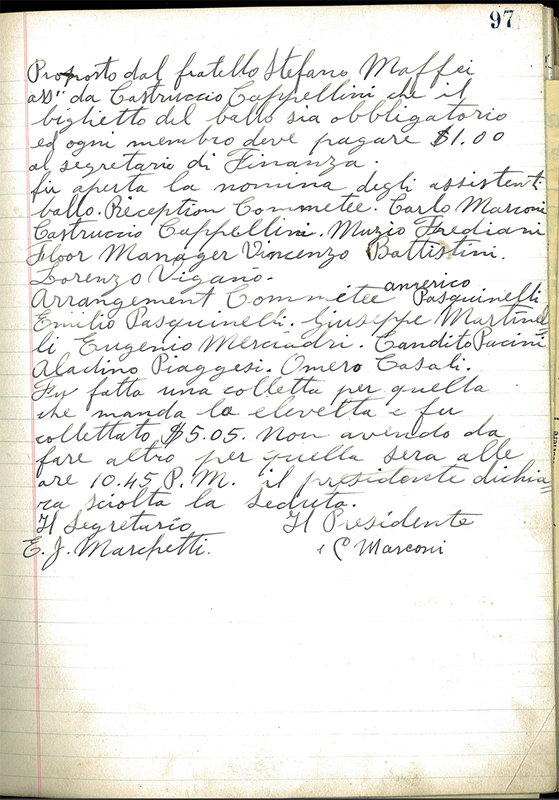 97
Proposto dal fratello Stefano Maffei
ass" da Castruccio Cappellini che il
biglietto del ballo sia obbligatorio
ed ogni membro deve pagare $1.00
al segretario di Finanza.
fu aperta la nomina degli assistenti
ballo. Reception Commetee. Carlo Marconi
Castruccio Cappellini. Muzio Frediani
Floor Manager Vincenzo Battistini.
Lorenzo Viganò.
Arrangement Commetee americo Pasquinelli
Emilio Pasquinelli. Giuseppe Martinel=
li Eugenio Merciadri. Candito Pacini
Aladino Piaggesi. Omero Casali.
Fu fatta una colletta per quella
che manda la elevetta e fu
collettato $5.05. Non avendo da
fare altro per quella sera alle
ore 10.45 P.M. il presidente dichia=
ra sciolta la seduta.
Il Segretario Il Presidente
E. J. Marchetti. C Marconi